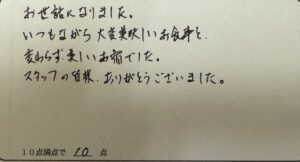 お世話になりました。
いつもながら大変美味しいお食事と、
変わらず美しいお宿でした。
スタッフの皆様、ありがとうございました。
10点満点で 10 点